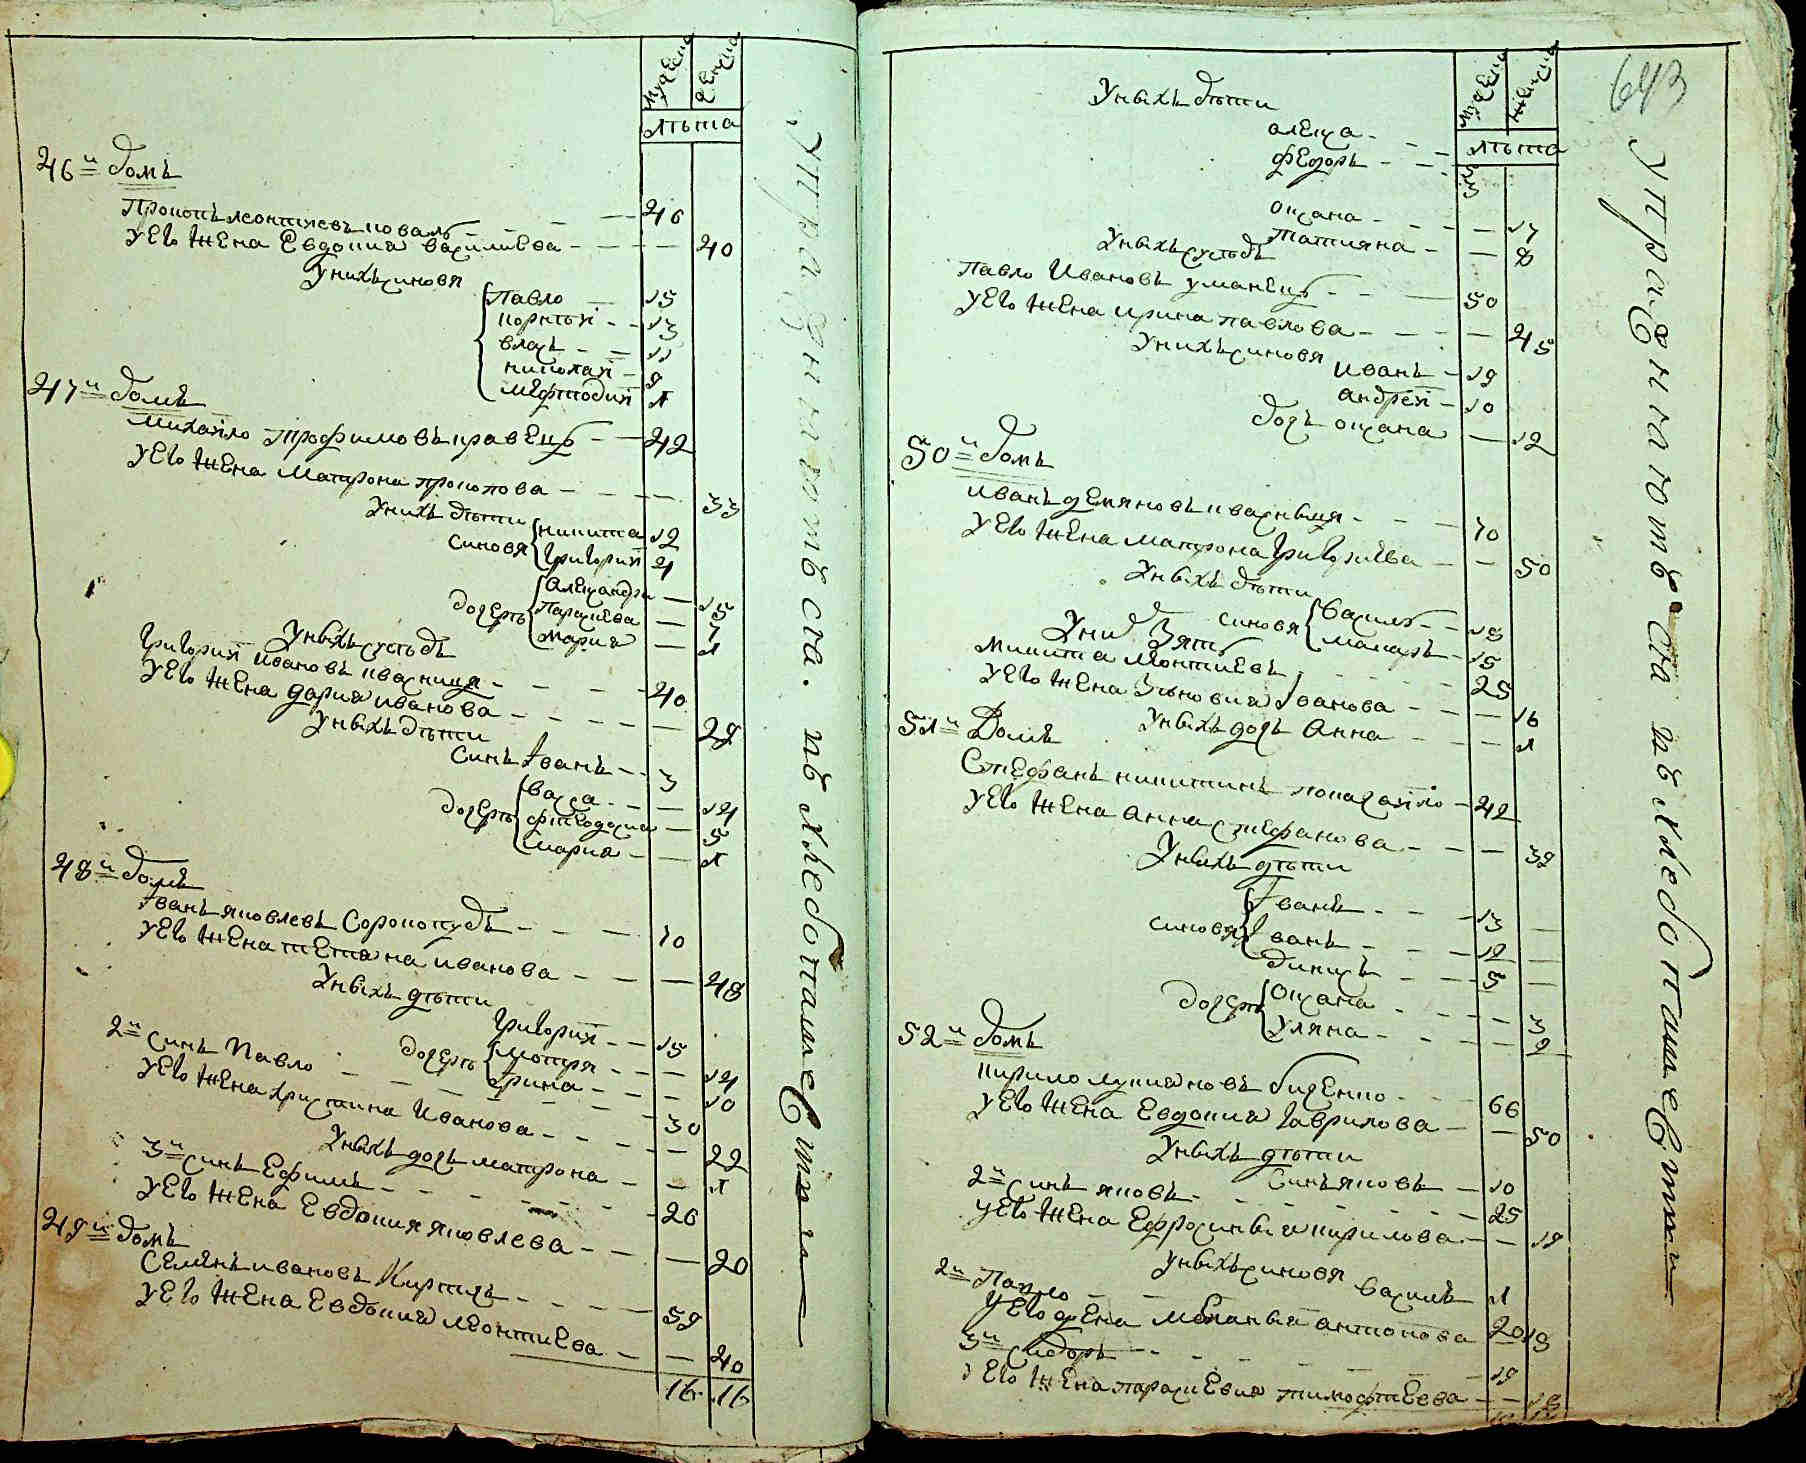 мужеска женска
лѣта
46й домъ
Прокопъ леонтиевъ коваль 46
Уего жена Евдокия василиева 40
Унихъ синовя
Павло 15
корнѣй 13
власъ 11
николай
мефтодий 1
47й домъ
Михайло трофимовъ кравецъ 42
Уего жена Матрона прокопова 33
Унихъ дѣти
синовя никита 12
григорий 4
дочерѣ Александра 15
Параскева 7
Мария 1
Уныхъ сусѣдъ
Григорий ивановъ квасниця 40
Уего жена дария иванова 29
Уныхъ дѣти
синъ Iванъ 3
дочерѣ васса 14
фтеодосия 5
мария 1
48й домъ
Iванъ яковлевъ Сорокопудъ 70
Уего жена тетяна иванова 48
Уныхъ дѣти
григорий 15
дочерѣ мотря 14
Iрина 10
2й синъ Павло 30
Уего жена христина Иванова 22
Уныхъ дочъ матрона 1
3й синъ Ефимъ 26
Уего жена Евдокия яковлева 20
49й домъ
Семенъ ивановъ 59
Уего жена Евдокия леонтиева 40
16 16
Упражняютъся въ хлебопашестви
643
мужеска женска
лѣта
Уныхъ дѣти
алекса
федоръ 3
оксана 17
татияна 8
Уныхъ сусѣдъ
Павло Ивановъ уманецъ 50
Уего жена ирина павлова 45
Унихъ синовя
иванъ 19
андрей 10
дочъ оксана 12
50й домъ
иванъ демяновъ квасныця 70
Уего жена матрона григориева 50
Уныхъ дѣти
синовя василь 18
макаръ 15
Уних зять
Микита леонтиевъ 25
Уего жена Зѣновия Iванова 16
Уныхъ дочъ Анна 1
51й Домъ
Стефанъ никитинъ 42
Уего жена анна стефанова 39
Уныхъ дѣти
синовя Iванъ 13
Iванъ 12
5
дочерѣ Оксана 3
Уляна 2
52й домъ
кирило лукияновъ 66
Уего жена Евдокия гаврилова 50
Уныхъ дѣти
Синъ яковъ 10
2й синъ яковъ 25
Уего жена Ефросиньия кирилова 19
Уныхъ синовя
василь 1
2й Павло 20
Уего жена меланыя антонова 19
3й сидоръ 19
Уего жена параскевия тимофтеева 18
Упражняютъ ся въ хлебопашестви